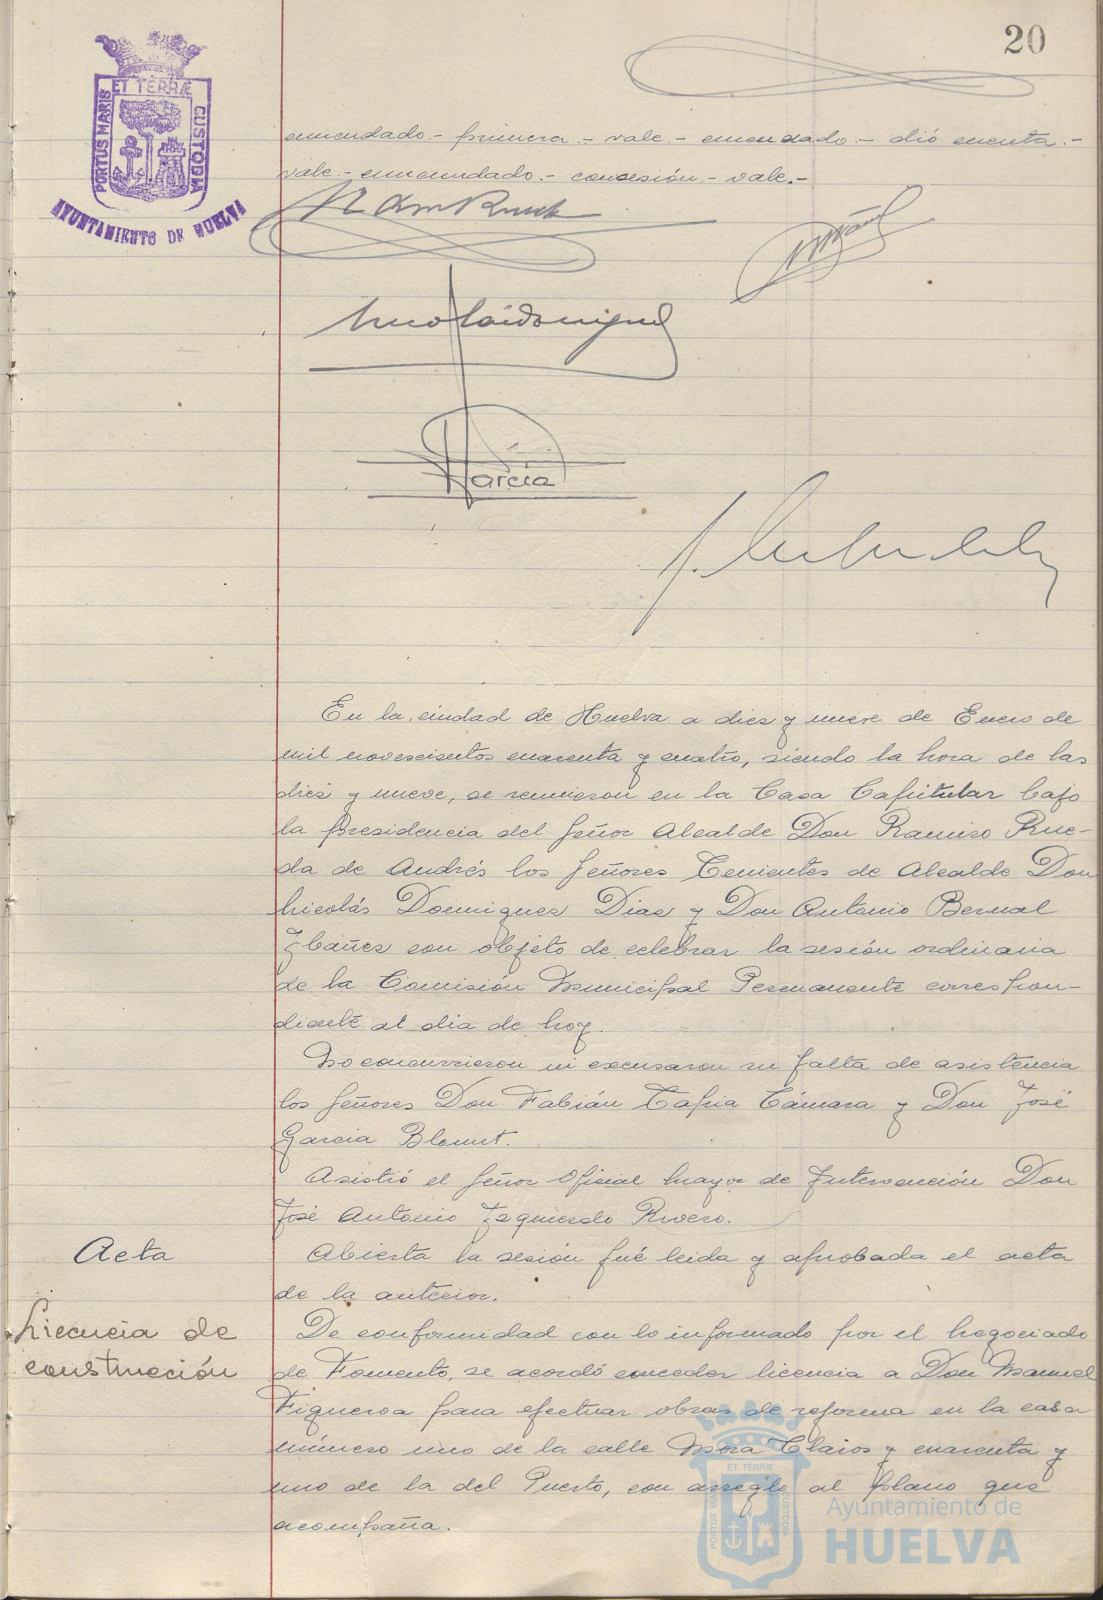 20
PORTUS MARIS ET TERRÆ CUSTODIA
AYUNTAMIENTO DE HUELVA
enmendado.- primera.- vale.- enmendado.- dió cuenta.-
vale.- enmendado.- concesión.- vale.-
García
En la ciudad de Huelva a diez y nueve de Enero de
mil novescientos cuarenta y cuatro, siendo la hora de las
diez y nueve, se reunieron en la Casa Capitular bajo
la presidencia del Señor Alcalde Don Ramiro Rue-
da de Andrés los Señores Tenientes de Alcalde Don
Nicolás Dominguez Diaz y Don Antonio Bernal
Ybáñez con objeto de celebrar la sesión ordinaria
de la Comisión Municipal Permanente correspon-
diente al dia de hoy.
No concurrieron ni excusaron su falta de asistencia
los Señores Don Fabián Tapia Cámara y Don José
Garcia Blount.
Asistió el Señor Oficial Mayor de Intervención Don
José Antonio Izquierdo Rivero.
Acta
Abierta la sesión fué leida y aprobada el acta
de la anterior.
Licencia de
construcción
De conformidad con lo informado por el Negociado
de Fomento, se acordó conceder licencia a Don Manuel
Figueroa para efectuar obras de reforma en la casa
número uno de la calle Mora Claros y cuarenta y
uno de la del Puerto, con arreglo al plano que
acompaña.
PORTUS MARIS ET TERRÆ CUSTODIA
Ayuntamiento de
HUELVA